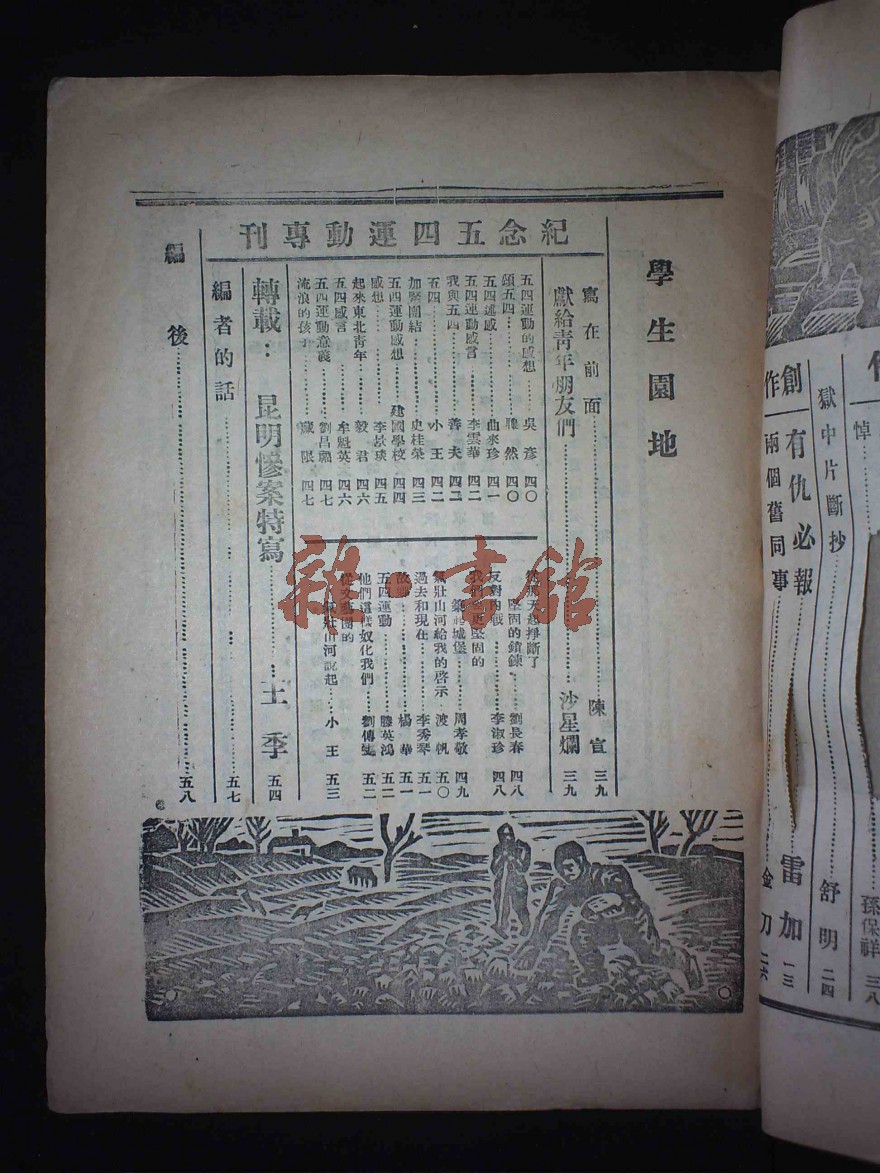 作
創作
有仇必報……雷加 一三
兩個舊同事……金刀 二六
獄中片斷抄……舒明 二四
悼……孫保祥 三八
學生園地
寫在前面……陳宣 三九
獻給青年朋友們……沙星爛 三九
紀念五四運動專刊
五四運動的感想……吳彥 四〇
頌五四……滕然 四〇
五四述感……曲來珍 四一
五四運動感言……李雲華 四二
我與五四……善夫 四二
五四……小王 四二
加緊團結……史桂榮 四三
五四運動感想……建國學校 四四
感想……李景瑛 四五
起來東北青年……毅君 四六
五四感言……牟魁英 四六
五四運動意義……劉昌 四七
流浪的孩子……限 四七
從那天起掙斷了
堅固的鎖鍊……劉長春 四八
反對內戰……李淑珍 四八
我們 更堅固的
城堡……周孝敬 四九
氣壯山河給我的啓示……波帆 五〇
過去和現在……李秀琴 五一
故鄉……楊華 五一
五四運動……滕英鴻 五二
他們這樣奴化我們……劉傳 五二
從文藝團的
氣壯山河說起……小王 五三
轉載：昆明慘案特寫……王季 五四
編者的話……五七
編後……五八
雜·書館